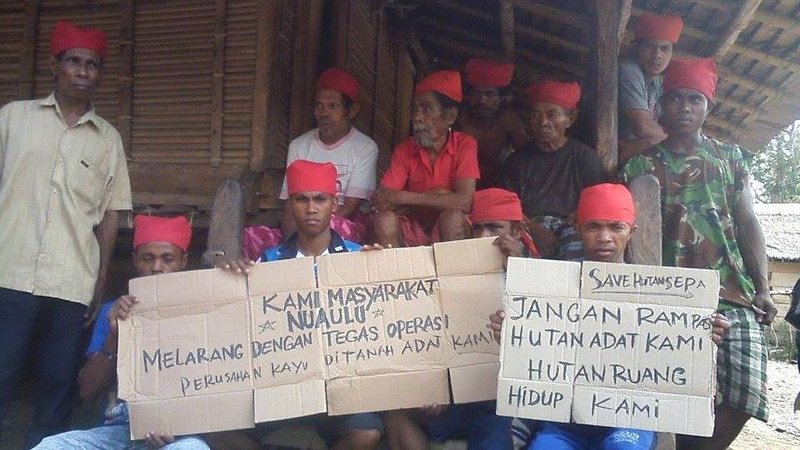 KAMI MASYARAKAT
☆ NUAULU ☆
MELARANG DENGAN TEGAS OPERASI
PERUSAHAN KAYU DITANAH ADAT KAMI
SAVE HUTANSEPA
JANGAN RAMPAS
HUTAN ADAT KAMI
HUTAN RUANG
HIDUP KAMI